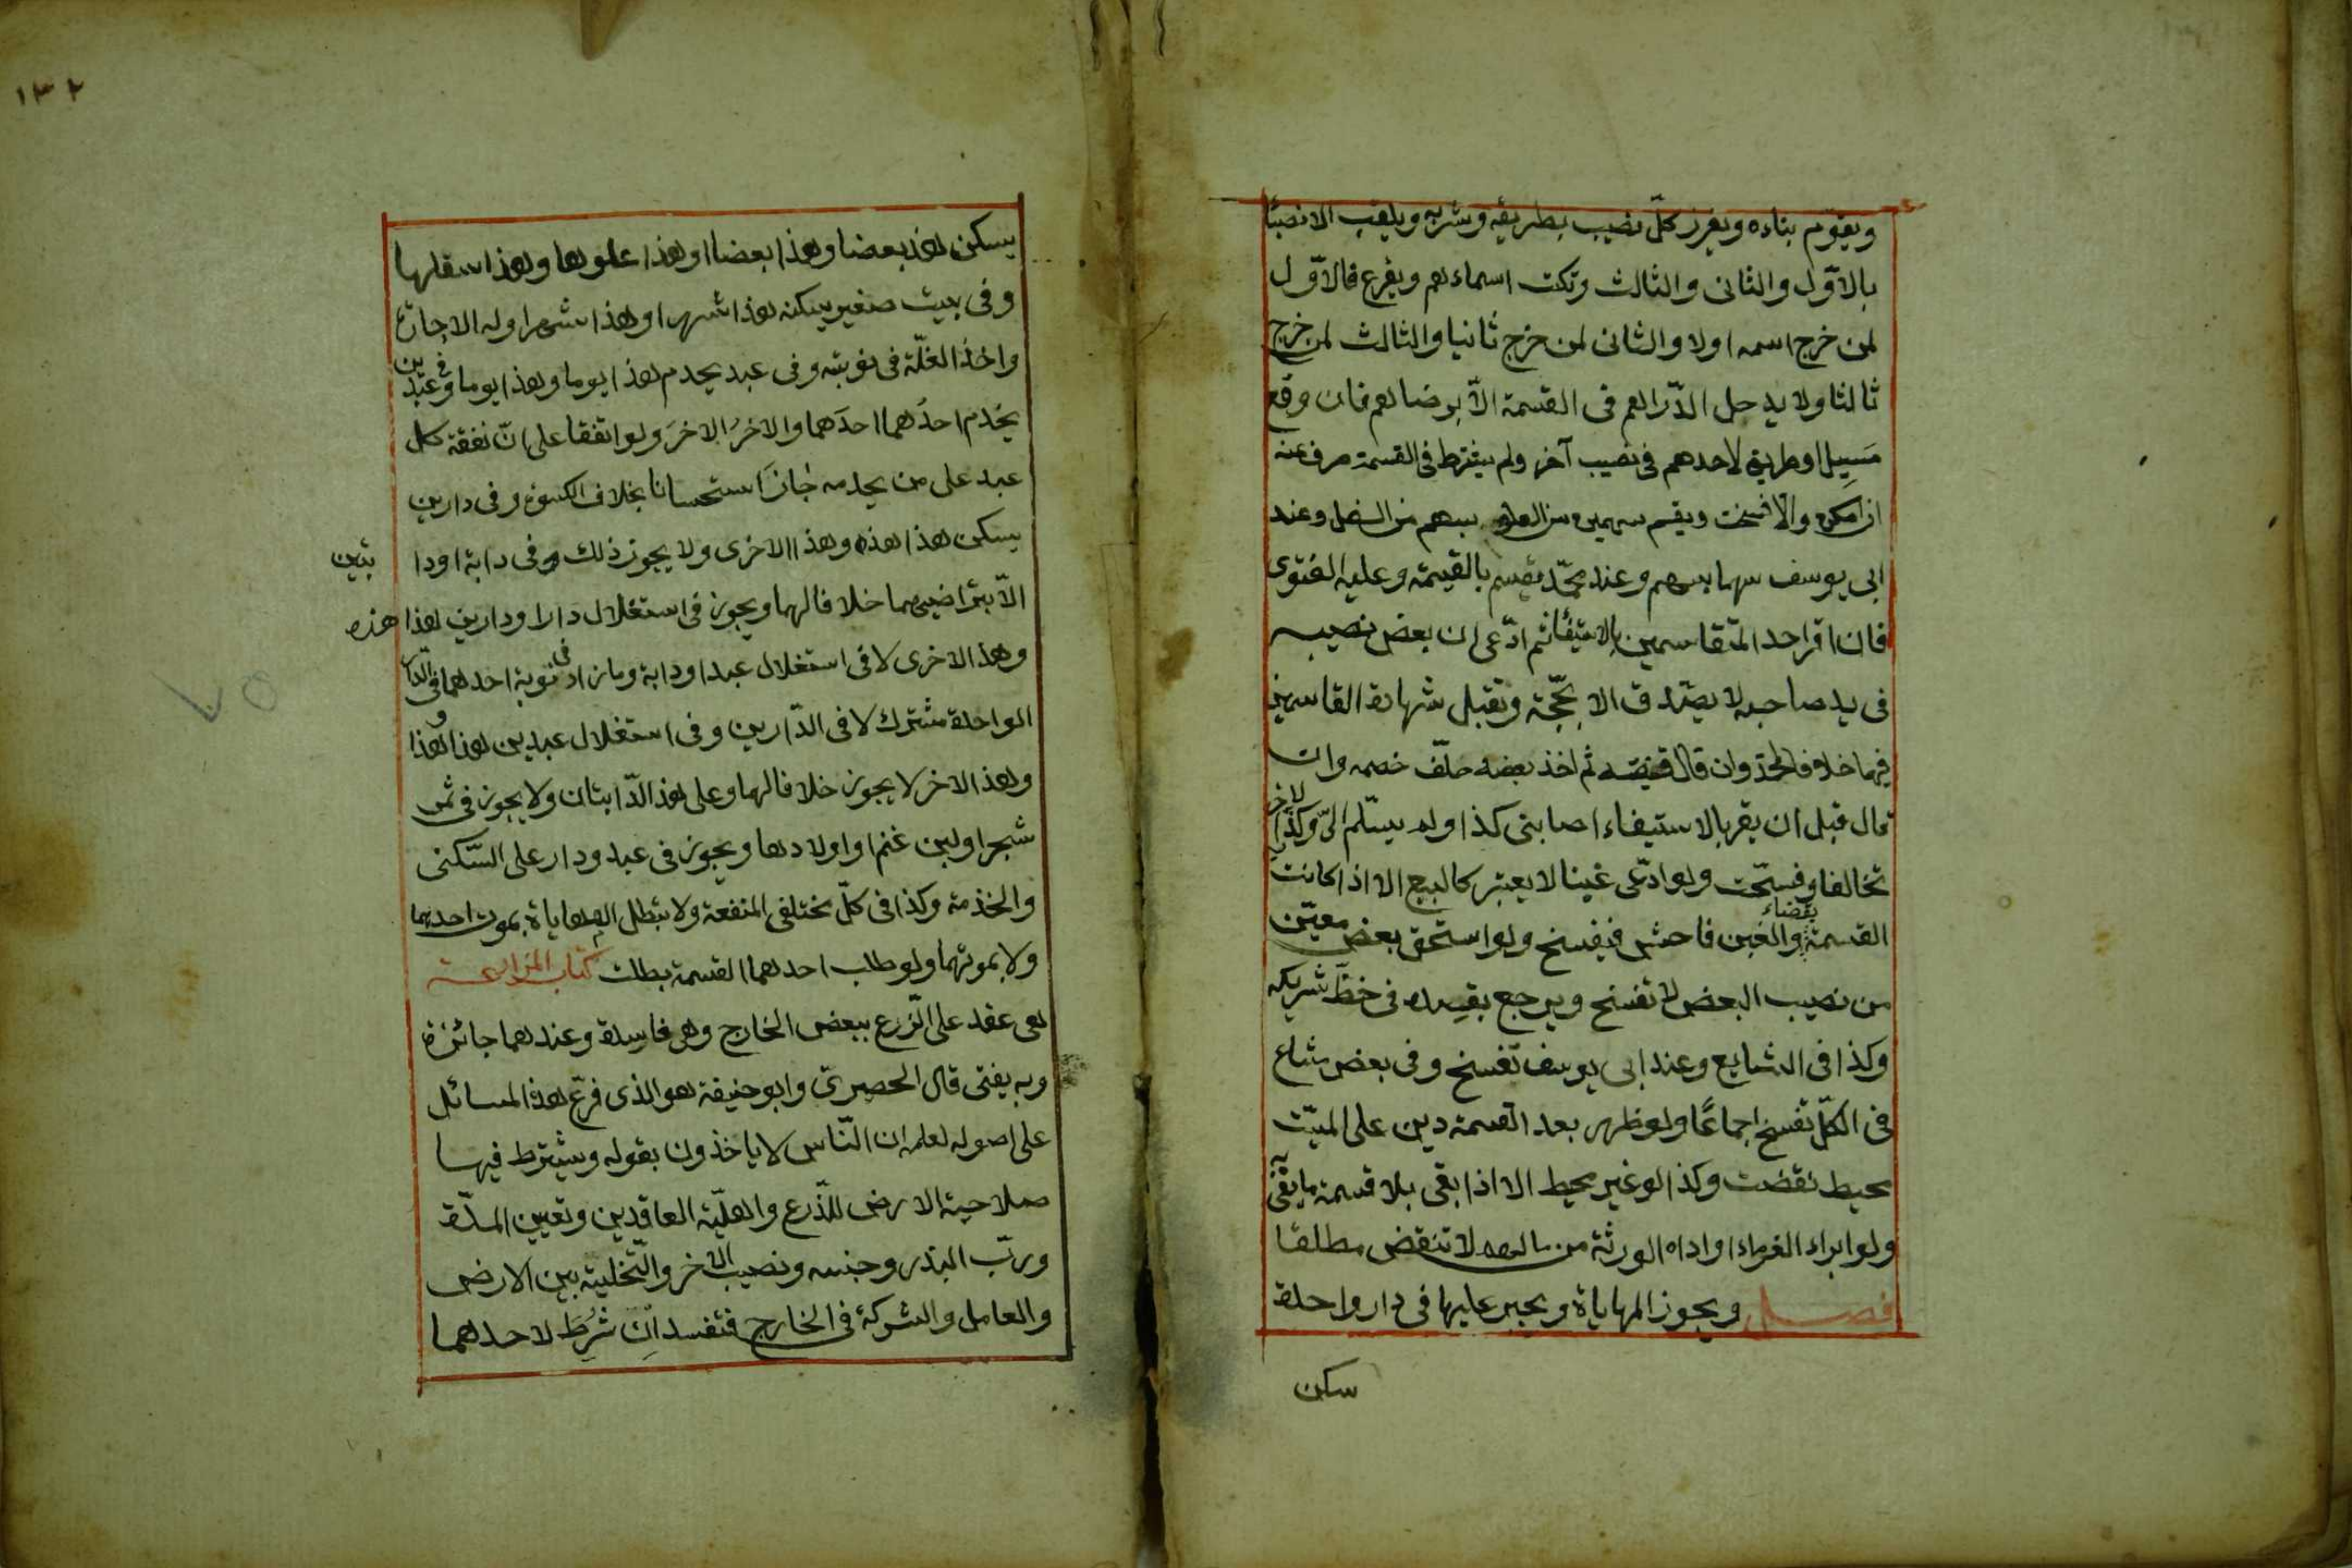 ويقوّم بناءه ويفرز كلّ نصيب بطريقه وشربه ويلقب الانصبا
بالاوّل والثانى والثالث وتكتب اسماءهم ويقرع فالاوّل
لمن خرج اسمه اولا والثانى لمن خرج ثانيا والثالث لمن خرج
ثالثا ولا يدخل الدّراهم فى القسمة الّا برضاهم فان وقع
مَسِيل او طريق لاحدهم فى نصيب آخر ولم يشترط فى القسمة صرف عنه
ان امكن والّا فسخت ويقسم سهمين من العلو بسهم من السفل وعند
ابى يوسف سهما بسهم وعند محمّد يقسم بالقيمة وعليه الفتوى
فان اقر احد المتقاسمين بالاستيفاء ثم ادّعى ان بعض نصيبه
فى يد صاحبه لا يصدق الا بحجّة وتقبل شهادة القاسمين
فيها خلافا لمحمّد وان قال قبضته ثم اخذ بعضه حلّف خصمه وان
قال قبل ان يقر بالاستيفاء اصابنى كذا ولم يسلّم الىّ وكذّبه الاخر
تخالفا وفسخت ولو ادّعى غبنا لا يعتبر كالبيع الا اذا كانت
القسمة بقضاء والغبن فاحش فيفسخ ولو استحق بعض معيّن
من نصيب البعض لا تفسخ ويرجع بقسطه فى حظّ شريكه
وكذا فى الشايع وعند ابى يوسف تفسخ وفى بعض مشاع
فى الكلّ تفسخ اجماعًا ولو ظهر بعد القسمة دين على الميّت
محيط نقضت وكذا لو غير محيط الا اذا بقى بلا قسمة ما يفى
ولو ابراء الغرماء او اداه الورثة من مالهم لا تنقض مطلقا
فصل ويجوز المهاياة ويجبر عليها فى دار واحدة
سكن
١٣٢
يسكن هذا بعضا وهذا بعضا او هذا علوها وهذا سفلها
وفى بيت صغير يسكنه هذا شهرا وهذا شهرا وله الاجارة
واخذ الغلّة فى نوبته وفى عبد يخدم هذا يوما وهذا يوما وفى عبدين
يخدم احدُهما احدَهما والاخرُ الاخرَ ولو اتفقا على انّ نفقة كل
عبد على من يخدمه جازَ استحسانا بخلاف الكسوة وفى دارين
يسكن هذا هذه وهذا الاخرى ولا يجوز ذلك وفى دابة او دا بتين
الّا بتراضيهما خلافا لهما ويجوز فى استغلال دار او دارين هذا هذه
وهذا الاخرى لا فى استغلال عبد او دابة وما زاد فى نوبة احدهما فى الدار
الواحدة مشترك لا فى الدّارين وفى استغلال عبدين هذا هذا
وهذا الاخر لا يجوز خلافا لهما وعلى هذا الدّابتان ولا يجوز فى ثمر
شجر او لبن غنم او اولادها ويجوز فى عبد ودار على السّكنى
والخذمة وكذا فى كلّ مختلفى المنفعة ولا يبطل المهاياة بموت احدهما
ولا بموتهما ولو طلب احدهما القسمة بطلت كتاب المزارعة
هى عقد على الزّرع ببعض الخارج وهى فاسدة وعندهما جائزة
وبه يفتى قال الحصيرى وابو حنيفة هو الذى فرّع هذه المسائل
على اصوله لعلمه ان النّاس لا ياخذون بقوله ويشترط فيها
صلاحية الارض للزّرع واهليّة العاقدين وتعيين المدّة
وربّ البذر وجنسه ونصيب الاخر والتّخلية بين الارض
والعامل والشركة فى الخارج فتفسد اِن شُرِطَ لاحدهما